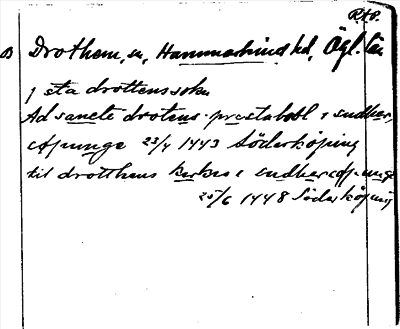 RAP.
Drothem, sn, Hammarkinds hd, Ögl. län
j sta drottens sokn
Ad sancte drotens prestabol i sudher,
cøpunge 23/4 1443 Söderköping
til drotthens kirkio i sudhercøpunge
25/6 1448 Söderköping